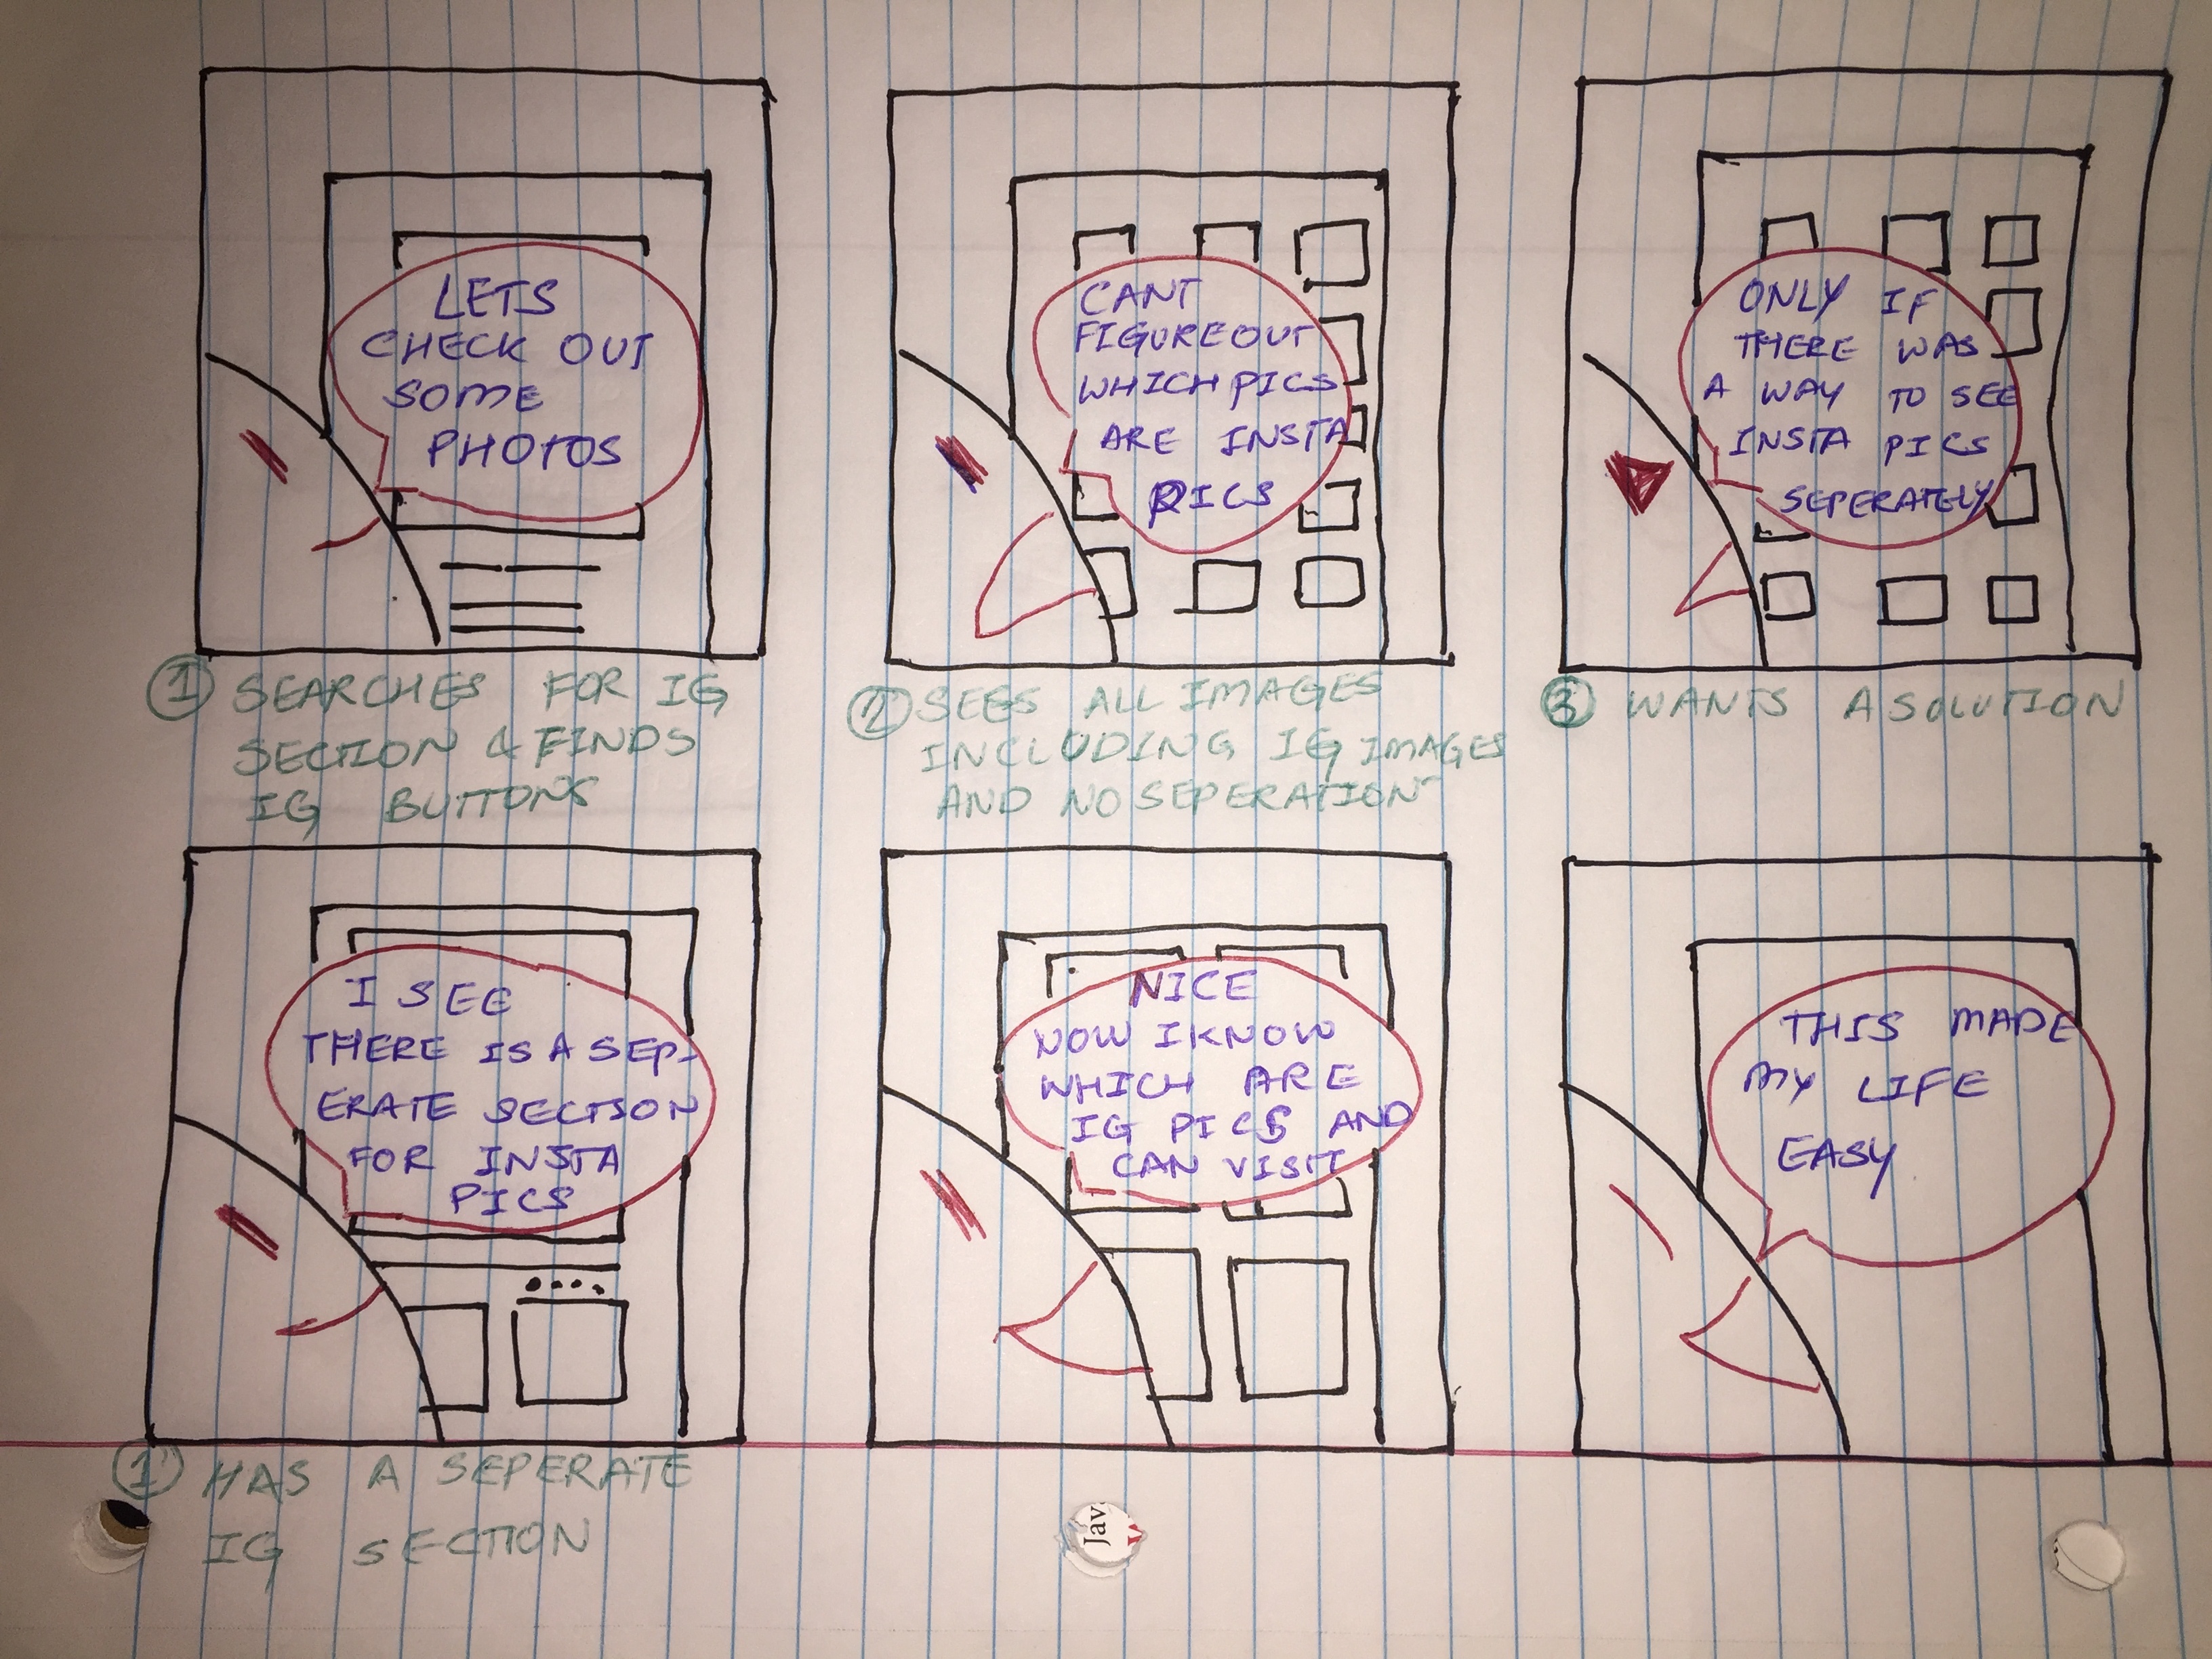 LETS
CHECK OUT
SOME
PHOTOS
① SEARCHES FOR IG
SECTION & FINDS
IG BUTTONS
CANT
FIGUREOUT
WHICH PICS
ARE INSTA
PICS
② SEES ALL IMAGES
INCLUDING IG IMAGES
AND NO SEPERATION
ONLY IF
THERE WAS
A WAY TO SEE
INSTA PICS
SEPERATELY
③ WANTS A SOLUTION
I SEE
THERE IS A SEP-
ERATE SECTION
FOR INSTA
PICS
① HAS A SEPERATE
IG SECTION
NICE
NOW I KNOW
WHICH ARE
IG PICS AND
CAN VISIT
THIS MADE
MY LIFE
EASY
Jav